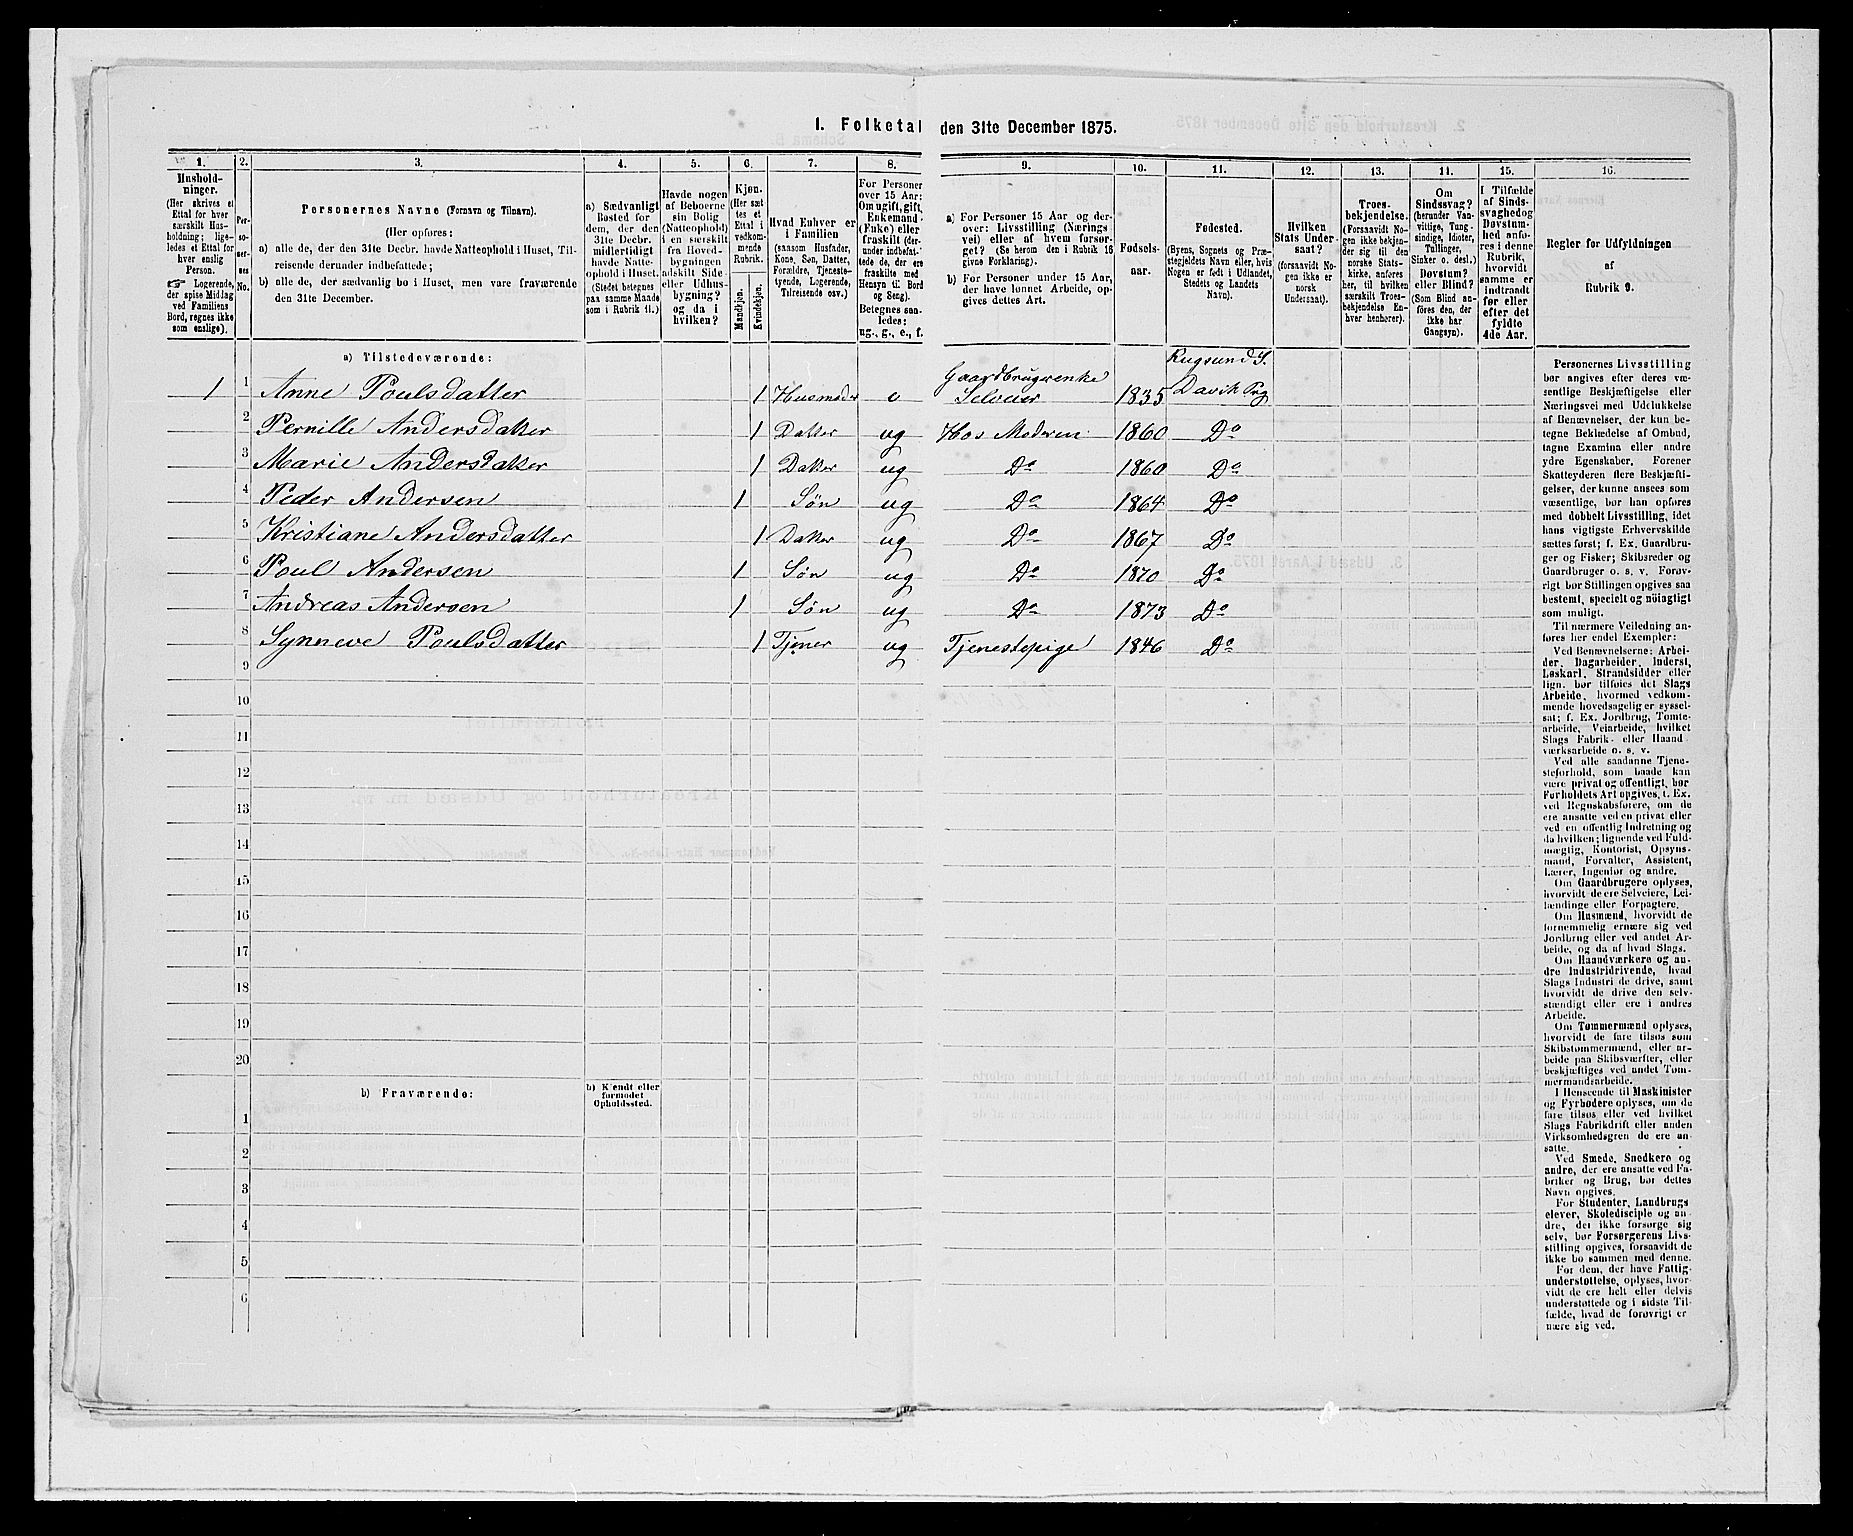 I. Folketal den 31te December 1875.
1. 2. 3. 4. 5. 6. 7. 8. 9. 10. 11. 12. 13. 11. 15. 16.
Hushold-
ninger.
(Her skrives et
Ettal for hver
særskilt Hus-
holdning; lige-
ledes et Ettal for
hver enslig
Person.
☞ Logerende,
der spise Middag
ved Familiens
Bord, regnes ikke
som enslige).
Per-
so-
ner-
nes
No.
Personernes Navne (Fornavn og Tilnavn).
(Her opføres:
a) alle de, der den 31te Decbr. havde Natteophold i Huset, Til-
reisende derunder indbefattede;
b) alle de, der sædvanlig bo i Huset, men vare fraværende
den 31te December.
a) Sædvanligt
Bosted for
dem, der den
31te Decbr.
midlertidigt
havde Natte-
ophold i Huset.
(Stedet betegnes
paa samme Maade
som i Rubrik 11.)
Havde nogen
af Beboerne
sin Bolig
(Natteophold)
i en særskilt
fra Hoved-
bygningen
adskilt Side-
eller Udhus-
bygning?
og da i
hvilken?
Kjøn.
(Her sæt-
tes et
Ettal i
vedkom-
mende
Rubrik.
Mandkjøn.
Kvindekjøn.
Hvad Enhver er
i Familien
(saasom Husfader,
Kone, Søn, Datter,
Forældre, Tjeneste-
tyende, Logerende,
Tilreisende osv.)
For Personer
over 15 Aar:
Om ugift, gift,
Enkemand
(Enke) eller
fraskilt (der-
under indbefat-
tede de, der ere
fraskilte med
Hensyn til Bord
og Seng).
Betegnes saa-
ledes:
ug., g., e., f.
a) For Personer 15 Aar og der-
over: Livsstilling (Nærings-
vei) eller af hvem forsør-
get? (Se herom den i Rubrik 16
givne Forklaring).
b) For Personer under 15 Aar,
der have lønnet Arbeide, op-
gives dettes Art.
Fødsels-
aar.
Fødested.
(Byens, Sognets og Præ-
stegjeldets Navn eller, hvis
Nogen er født i Udlandet,
Stedets og Landets
Navn).
Hvilken
Stats Under-
saat?
(forsaavidt No-
gen ikke er
norsk
Undersaat).
Troes-
bekjendelse.
(Forsaavidt No-
gen ikke bekjen-
der sig til den
norske Stats-
kirke, anføres
her, til hvilken
særskilt Troes-
bekjendelse En-
hver henhører).
Om
Sindssvag?
(herunder Van-
vittige, Tung-
sindige, Idioter,
Tullinger,
Sinker o. desl.)
Døvstum?
eller Blind?
(Som Blind an-
føres den, der
ikke har
Gangsyn).
I Tilfælde
af Sinds-
svaghed og
Døvstum-
hed anfø-
res i denne
Rubrik,
hvorvidt
samme er
indtraadt
før eller
efter det
fyldte
4de Aar.
Regler for Udfyldningen
af
Rubrik 9.
a) Tilstedeværende:
Rugsund S.
Gaardbrugerenke
1 1 Anne Poulsdatter 1 Husmoder e Selveier 1835 Davik Prg
2 Pernille Andersdatter 1 Datter ug Hos Moderen 1860 Do
3 Marie Andersdatter 1 Datter ug Do 1860 Do
4 Peder Andersen 1 Søn ug Do 1864 Do
5 Kristiane Andersdatter 1 Datter ug Do 1867 Do
6 Poul Andersen 1 Søn ug Do 1870 Do
7 Andreas Andersen 1 Søn ug Do 1873 Do
8 Synneve Poulsdatter 1 Tjener ug Tjenestepige 1846 Do
9
10
11
12
13
14
15
16
17
18
19
20
b) Fraværende:
b) Kjendt eller
formodet
Opholdssted.
1
2
3
4
5
6
Personernes Livsstilling
bør angives efter deres væ-
sentlige Beskjæftigelse eller
Næringsvei med Udelukkelse
af Benævnelser, der kun be-
tegne Beklædelse af Ombud,
tagne Examina eller andre
ydre Egenskaber. Forener
Skatteyderen flere Beskjæfti-
gelser, der kunne ansees som
væsentlige, bør han opføres
med dobbelt Livsstilling, idet
hans vigtigste Erhvervskilde
sættes først; f. Ex. Gaardbru-
ger og Fisker; Skibsreder og
Gaardbruger o. s. v. Forøv-
rigt bør Stillingen opgives saa
bestemt, specielt og nöiagtigt
som muligt.
Til nærmere Veiledning an-
føres her endel Exempler:
Ved Benævnelserne: Arbei-
der, Dagarbeider, Inderst,
Løskarl, Strandsidder eller
lign. bør tilføies det Slags
Arbeide, hvormed vedkom-
mende hovedsagelig er syssel-
sat; f. Ex. Jordbrug, Tomte-
arbeide, Veiarbeide, hvilket
Slags Fabrik- eller Haand-
værksarbeide o. s. v.
Ved alle saadanne Tjene-
steforhold, som baade kan
være privat og offentligt, bør
Forholdets Art opgives, t. Ex.
ved Regnskabsførere, om de
ere ansatte ved en privat eller
ved en offentlig Indretning og
da hvilken; lignende ved Fuld-
mægtig, Kontorist, Opsyns-
mand, Forvalter, Assistent,
Lærer, Ingeniør og andre.
Om Gaardbrugere oplyses,
hvorvidt de ere Selveiere, Lei-
lændinge eller Forpagtere.
Om Husmænd, hvorvidt de
fornemmelig ernære sig ved
Jordbrug eller ved andet Ar-
beide, og da af hvad Slags.
Om Haandværkere og an-
dre Industridrivende, hvad
Slags Industri de drive, samt
hvorvidt de drive den selv-
stændigt eller ere i andres
Arbeide.
Om Tømmermænd oplyses,
hvorvidt de fare tilsøs som
Skibstømmermænd, eller ar-
beide paa Skibsværfter, eller
beskjæftiges ved andet Tøm-
mermandsarbeide.
I Henseende til Maskinister
og Fyrbødere oplyses, om de
fare tilsøs eller ved hvilket
Slags Fabrikdrift eller anden
Virksomhedsgren de ere an-
satte.
Ved Smede, Snedkere og
andre, der ere ansatte ved Fa-
briker og Brug, bør dettes
Navn opgives.
For Studenter, Landbrugs-
elever, Skoledisciple og an-
dre, der ikke forsørge sig
selv, bør Forsørgerens Livs-
stilling opgives, forsaavidt de
ikke bo sammen med denne.
For dem, der have Fattig-
understøttelse, oplyses, hvor-
vidt de ere helt eller delvis
understøttede og i sidste Til-
fælde, hvad de forøvrigt er-
nære sig ved.